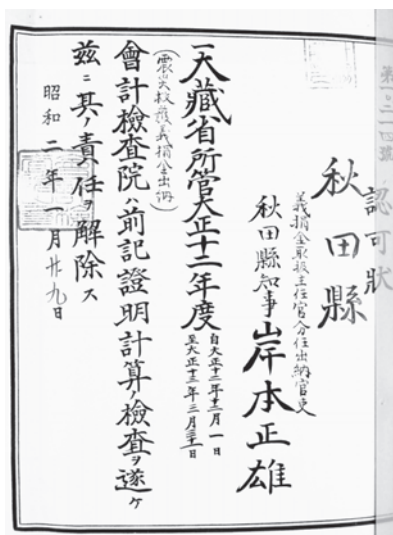 認可狀
秋田縣
義捐金取扱主任官分任出納官吏
秋田縣知事岸本正雄
一大藏省所管大正十二年度
自大正十二年十二月一日
至大正十三年三月三十一日
(震災救護義捐金出納)
會計檢査院ハ前記證明計算ノ檢査ヲ遂ケ
玆ニ其ノ責任ヲ解除ス
昭和二年一月廿九日